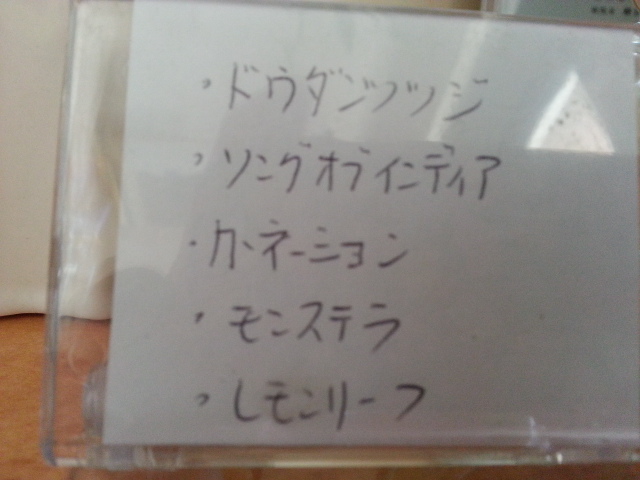 ・ドウダンツツジ
・ソングオブインディア
・カーネーション
・モンステラ
・レモンリーフ